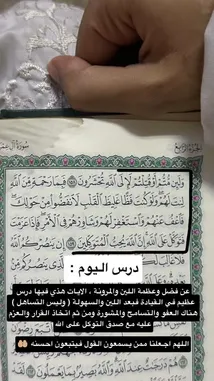 الجزء الرابع سورة آل عمران
وَلَئِن مُّتُّمْ أَوْ قُتِلْتُمْ لَإِلَى ٱللَّهِ تُحْشَرُونَ ١٥٨ فَبِمَا رَحْمَةٍ مِّنَ ٱللَّهِ
لِنتَ لَهُمْ وَلَوْ كُنتَ فَظًّا غَلِيظَ ٱلْقَلْبِ لَٱنفَضُّوا۟ مِنْ حَوْلِكَ
فَٱعْفُ عَنْهُمْ وَٱسْتَغْفِرْ لَهُمْ وَشَاوِرْهُمْ فِى ٱلْأَمْرِ فَإِذَا عَزَمْتَ
فَتَوَكَّلْ عَلَى ٱللَّهِ إِنَّ ٱللَّهَ يُحِبُّ ٱلْمُتَوَكِّلِينَ ١٥٩ إِن يَنصُرْكُمُ ٱللَّهُ
درس اليوم :
عن فضل وعظمة اللين والمرونة ، الآيات هذي فيها درس
عظيم في القيادة فبعد اللين والسهولة ( وليس التساهل )
هناك العفو والتسامح والمشورة ومن ثم اتخاذ القرار والعزم
عليه مع صدق التوكل على الله
اللهم اجعلنا ممن يسمعون القول فيتبعون احسنه 🤲🏼